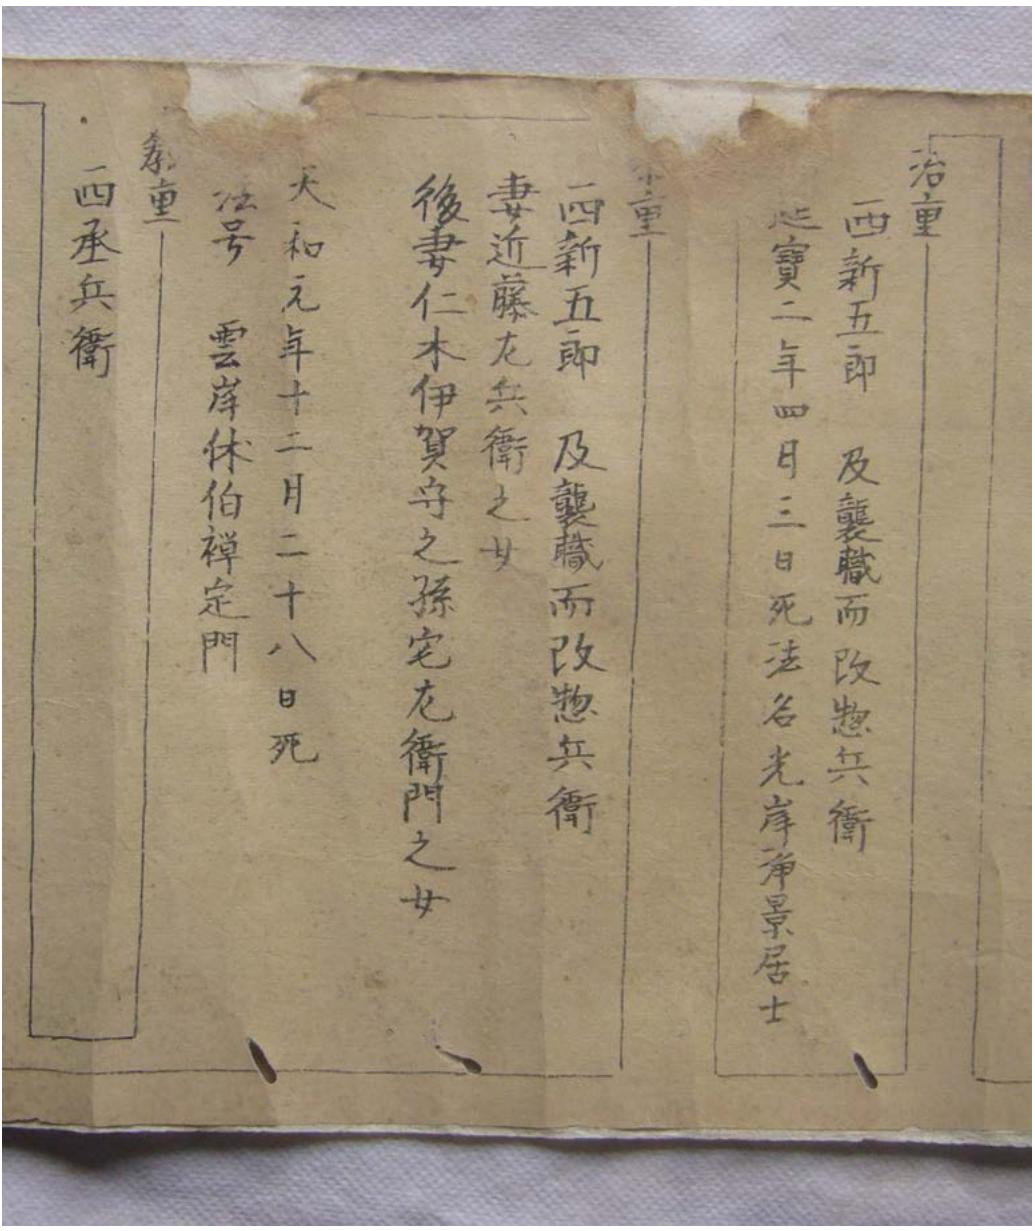 治重
西新五郎 及襲職而改惣兵衛
延寶二年四日三日死法名光岸净景居士
重
西新五郎 及襲職而改惣兵衛
妻近藤左兵衛之女
後妻仁木伊賀守之孫宅左衛門之女
天和元年十二月二十八日死
法号 雲岸休伯禅定門
重
西承兵衛